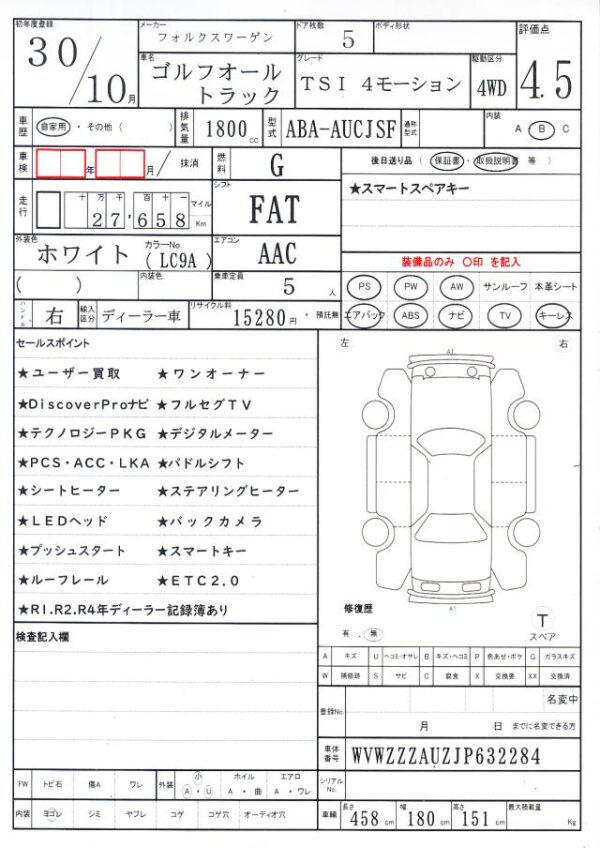 初年度登録
30/10月
メーカー
フォルクスワーゲン
ドア枚数
5
ボディ形状
評価点
4.5
車名
ゴルフオール
トラック
グレード
TSI 4モーション
駆動区分
4WD
車歴
自家用・その他( )
排気量
1800cc
型式
ABA-AUCJSF
通称型式
内装
A B C
車検
年 月/ 抹消
燃料
G
後日送り品 ( 保証書・取扱説明書 等 )
★スマートスペアキー
走行
十 万 千 百 十 一
27,658
マイル
Km
シフト
FAT
外装色
ホワイト
カラーNo.
(LC9A)
エアコン
AAC
装備品のみ 〇印 を記入
( )
内装色
乗車定員
5人
PS PW AW サンルーフ 本革シート
エアバック ABS ナビ TV キーレス
ハンドル
右
輸入区分
ディーラー車
リサイクル料
15280円・預託無
セールスポイント
★ユーザー買取 ★ワンオーナー
★DiscoverProナビ ★フルセグTV
★テクノロジーPKG ★デジタルメーター
★PCS・ACC・LKA ★パドルシフト
★シートヒーター ★ステアリングヒーター
★LEDヘッド ★バックカメラ
★プッシュスタート ★スマートキー
★ルーフレール ★ETC2.0
★R1.R2.R4年ディーラー記録簿あり
左 右
A1
A1
修復歴
有 . 無
T
スペア
検査記入欄
A キズ U ヘコミ・オサレ B キズ・ヘコミ P 色あせ・ボケ G ガラスキズ
W 補修跡 S サビ C 腐食 X 交換要 XX 交換済
登録No.
名変中
月 日 までに名変できる方
車体番号
WVWZZZAUZJP632284
シリアルNo.
FW トビ石 傷A ワレ
外装 小 ホイル エアロ
A ・ U A ・ 曲 A ・ ワレ
内装 ヨゴレ シミ ヤブレ コゲ コゲ穴 オーディオ穴
車輛
長さ 458cm 幅 180cm 高さ 151cm
最大積載量 Kg